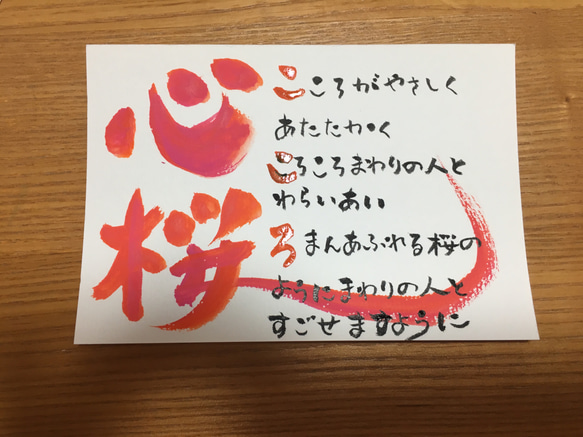 心桜
こころがやさしく
あたたかく
ころころまわりの人と
わらいあい
ろまんあふれる桜の
ようにまわりの人と
すごせますように